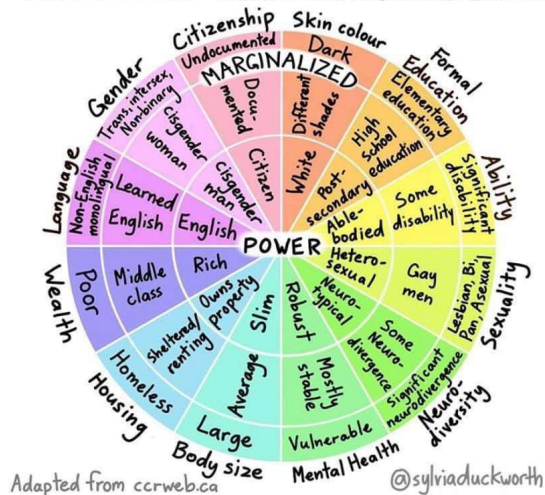 Citizenship
Undocumented
Documented
Citizen
Skin colour
Dark
Different shades
White
Formal Education
Elementary education
High school education
Post-secondary
Ability
Significant disability
Some disability
Able-bodied
Sexuality
Lesbian, Bi, Pan, Asexual
Gay men
Heterosexual
Neurodiversity
Significant neurodivergence
Some Neurodivergence
Neurotypical
Mental Health
Vulnerable
Mostly stable
Robust
Body size
Large
Average
Slim
Housing
Homeless
Sheltered/renting
Owns property
Wealth
Poor
Middle class
Rich
Language
Non-English monolingual
Learned English
English
Gender
Trans, intersex, Non-binary
Cisgender woman
Cisgender man
MARGINALIZED
POWER
Adapted from ccrweb.ca
@sylviaduckworth